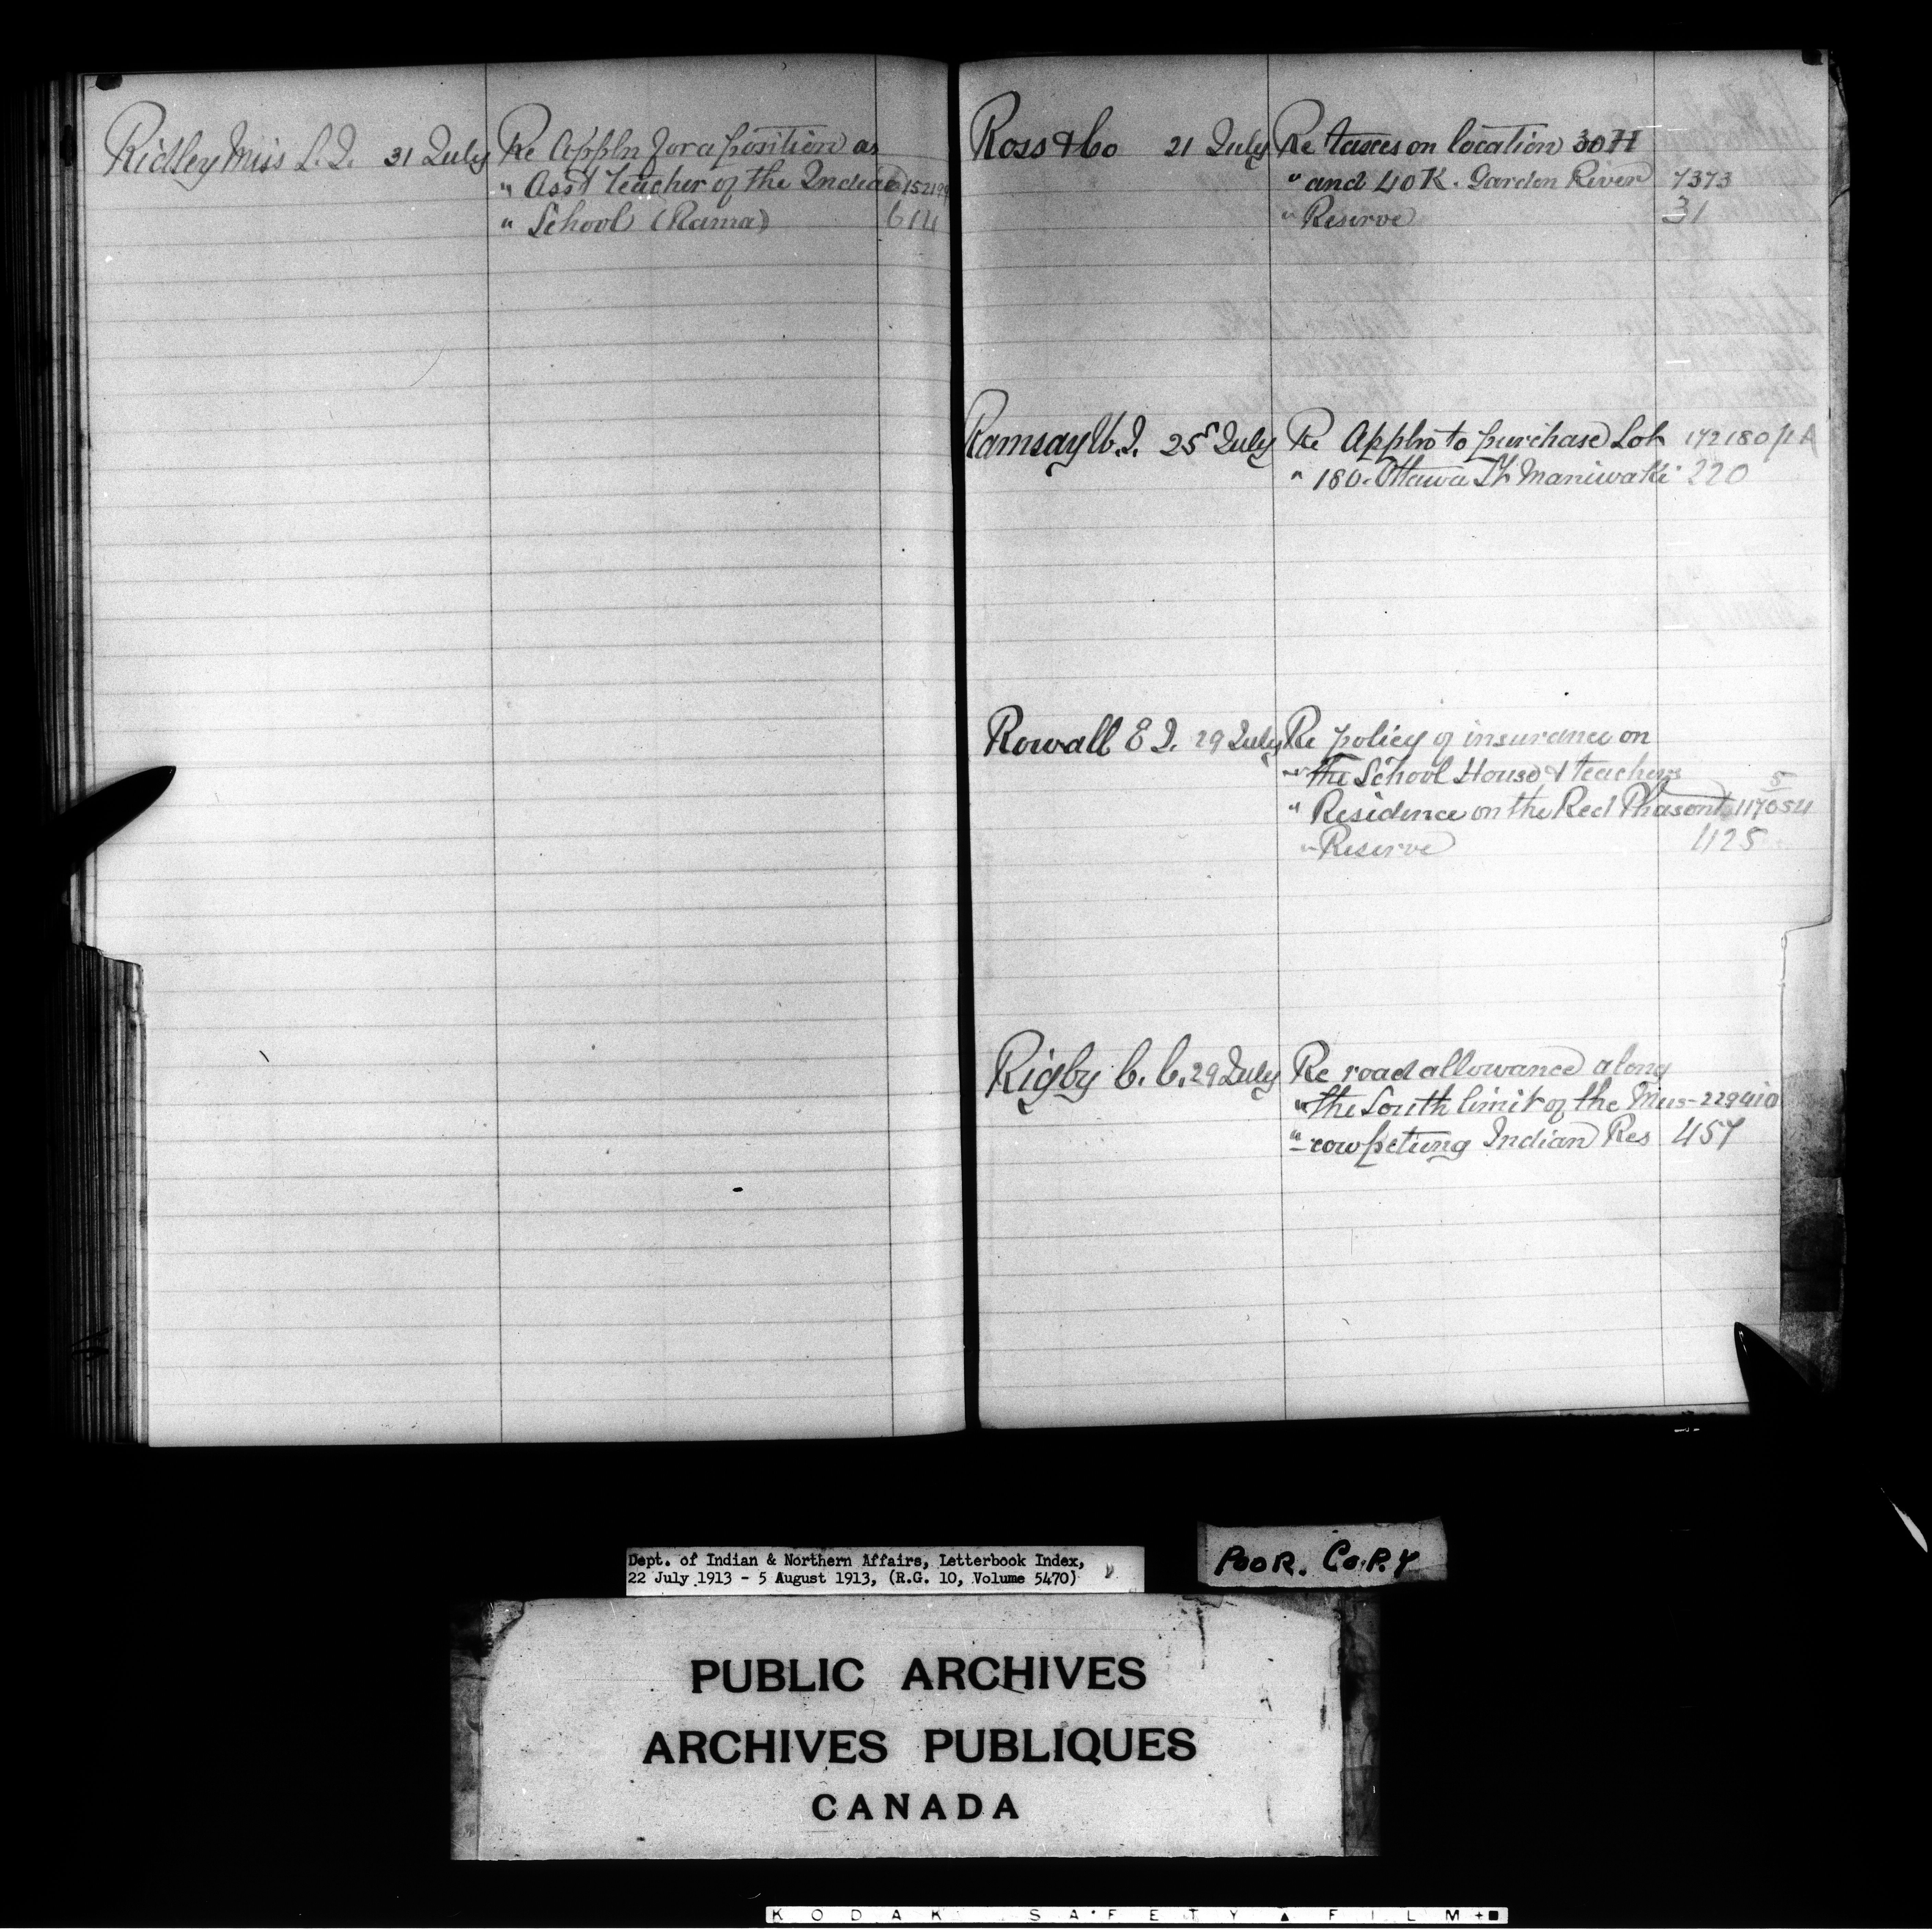 Ridley Miss L. J. 31 July Re Appln for a position as
" Asst teacher of the Indian
" School (Rama) 614
Ross & Co 21 July Re taxes on location 30 H
" and 40 K. Garden River 7373
" Reserve 31
Ramsay W. J. 25 July Re Appln to purchase Lot 172180
" 180. Ottawa St Maniwaki 220
Rowall E J. 29 July Re policy of insurance on
" the School House & teachers
" Residence on the Red Phasont 117054
" Reserve 425
Rigby C. C. 29 July Re road allowance along
" the South limit of the Mus- 229410
" cowpetung Indian Res 457
Dept. of Indian & Northern Affairs, Letterbook Index,
22 July 1913 - 5 August 1913, (R.G. 10, Volume 5470)
POOR. COPY
PUBLIC ARCHIVES
ARCHIVES PUBLIQUES
CANADA
KODAK SAFETY ▲ FILM + ■